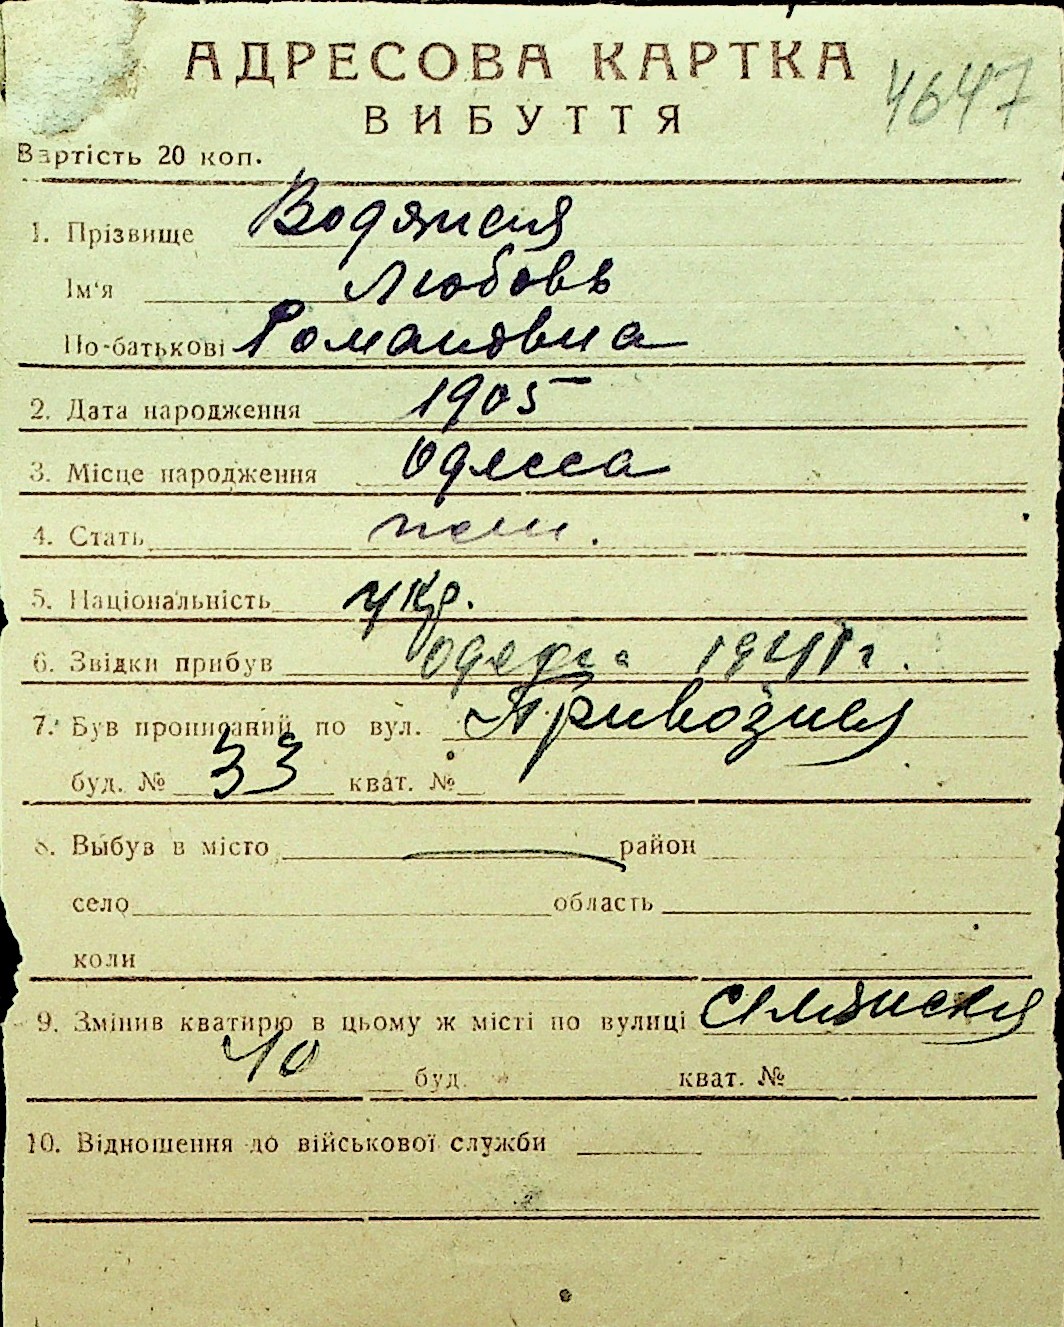 АДРЕСОВА КАРТКА
4647
ВИБУТТЯ
Вартість 20 коп.
1. Прізвище Водяная
Ім'я Любовь
По-батькові Романовна
2. Дата народження 1905
3. Місце народження Одесса
4. Стать жен.
5. Національність укр.
6. Звідки прибув Одесса 1941 г.
7. Був прописаний по вул. Привозная
буд. № 33 кват. №
8. Выбув в місто район
село область
коли
9. Змінив кватирю в цьому ж місті по вулиці
40 буд. кват. №
10. Відношення до військової служби